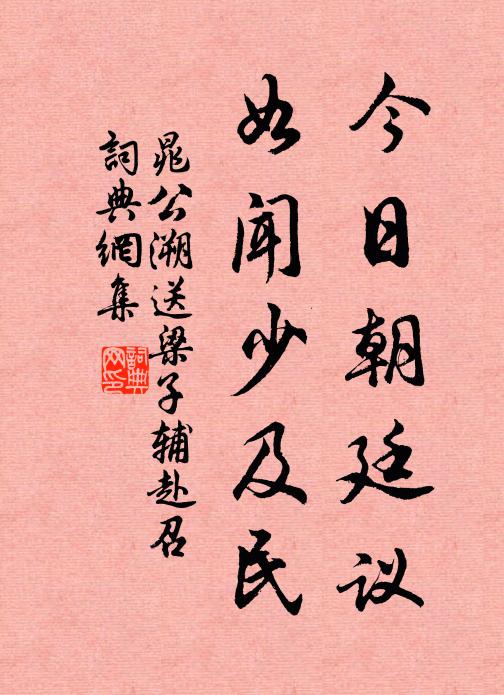 今日朝廷议
如闻少及民
晁公溯送梁子辅赴召
詞典網集
詞典网印